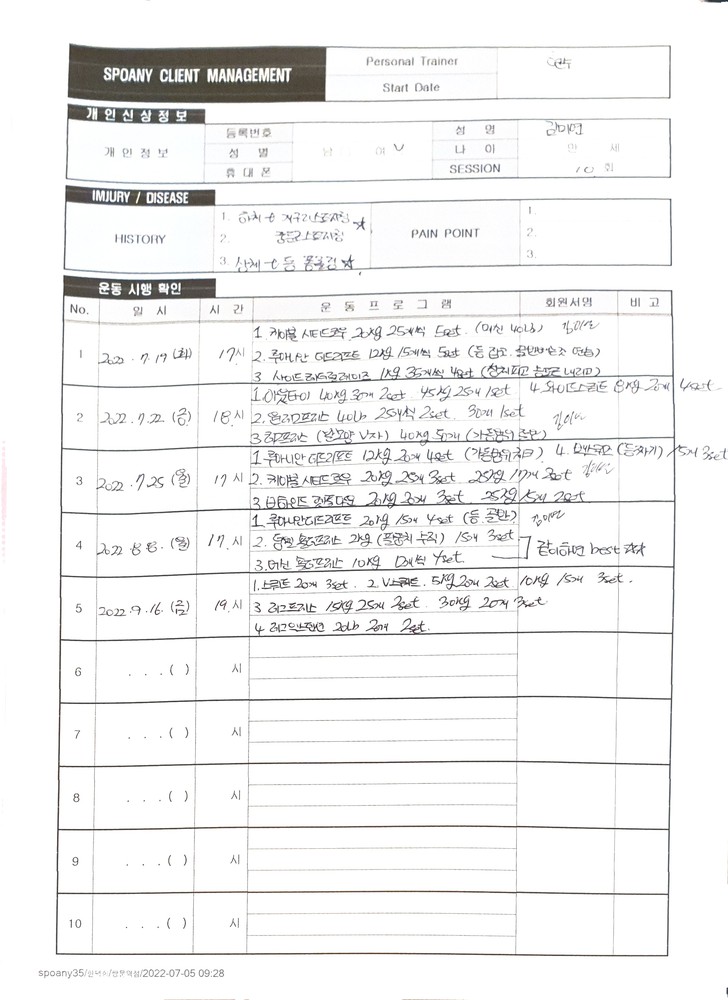 SPOANY CLIENT MANAGEMENT
Personal Trainer
Start Date
개인신상정보
개인정보
등록번호
성 명 김미연
성 별 남 여 V
나 이 만 세
휴대폰
SESSION 10 회
IMJURY / DISEASE
HISTORY
1. 하체 t
2.
3. 상체 t 등
PAIN POINT
1.
2.
3.
운동 시행 확인
No. 일 시 시 간 운동프로그램 회원서명 비고
1 2022. 7. 19 (화) 17시
1. 케이블 시티드로우 20kg 25개씩 5set. (머신 40lb) 김미연
2. 루마니안 데드리프트 12kg 15개씩 5set (등 잡고
3 사이드레터럴레이즈 1kg 35개씩 4set
2 2022. 7. 22 (금) 18시
1. 이너타이 40kg 30개 2set 45kg 25개 1set 4. 와이드스쿼트 8kg 20개 4set
2. 원레그프레스 40lb 25개씩 2set 30개 1set 김미연
3. 레그프레스 (발모양 V자) 40kg 50개 (가동범위
3 2022. 7. 25 (월) 17시
1. 루마니안 데드리프트 12kg 20개 4set (가동범위 4. (등차기) 15개 3set
2. 케이블 시티드로우 20kg 25개 3set 25kg 17개 2set 김미연
3. 20kg 20개 3set 25kg 15개 2set
4 2022. 8. 8. (월) 17. 시
1. 루마니안데드리프트 20kg 15개 4set (등, 골반) 김미연
2. 덤벨 숄더프레스 2kg (팔꿈치 수직) 15개 3set
3. 머신 숄더프레스 10kg 12개씩 4set. 같이하면 best
5 2022. 9. 16. (금) 19. 시
1. 스쿼트 20개 3set. 2. V스쿼트. 5kg 20개 2set 10kg 15개 3set.
3 레그프레스 15kg 25개 2set. 30kg 20개 3set
4 레그익스텐션 20lb 20개 2set.
6 . . . ( ) 시
7 . . . ( ) 시
8 . . . ( ) 시
9 . . . ( ) 시
10 . . . ( ) 시